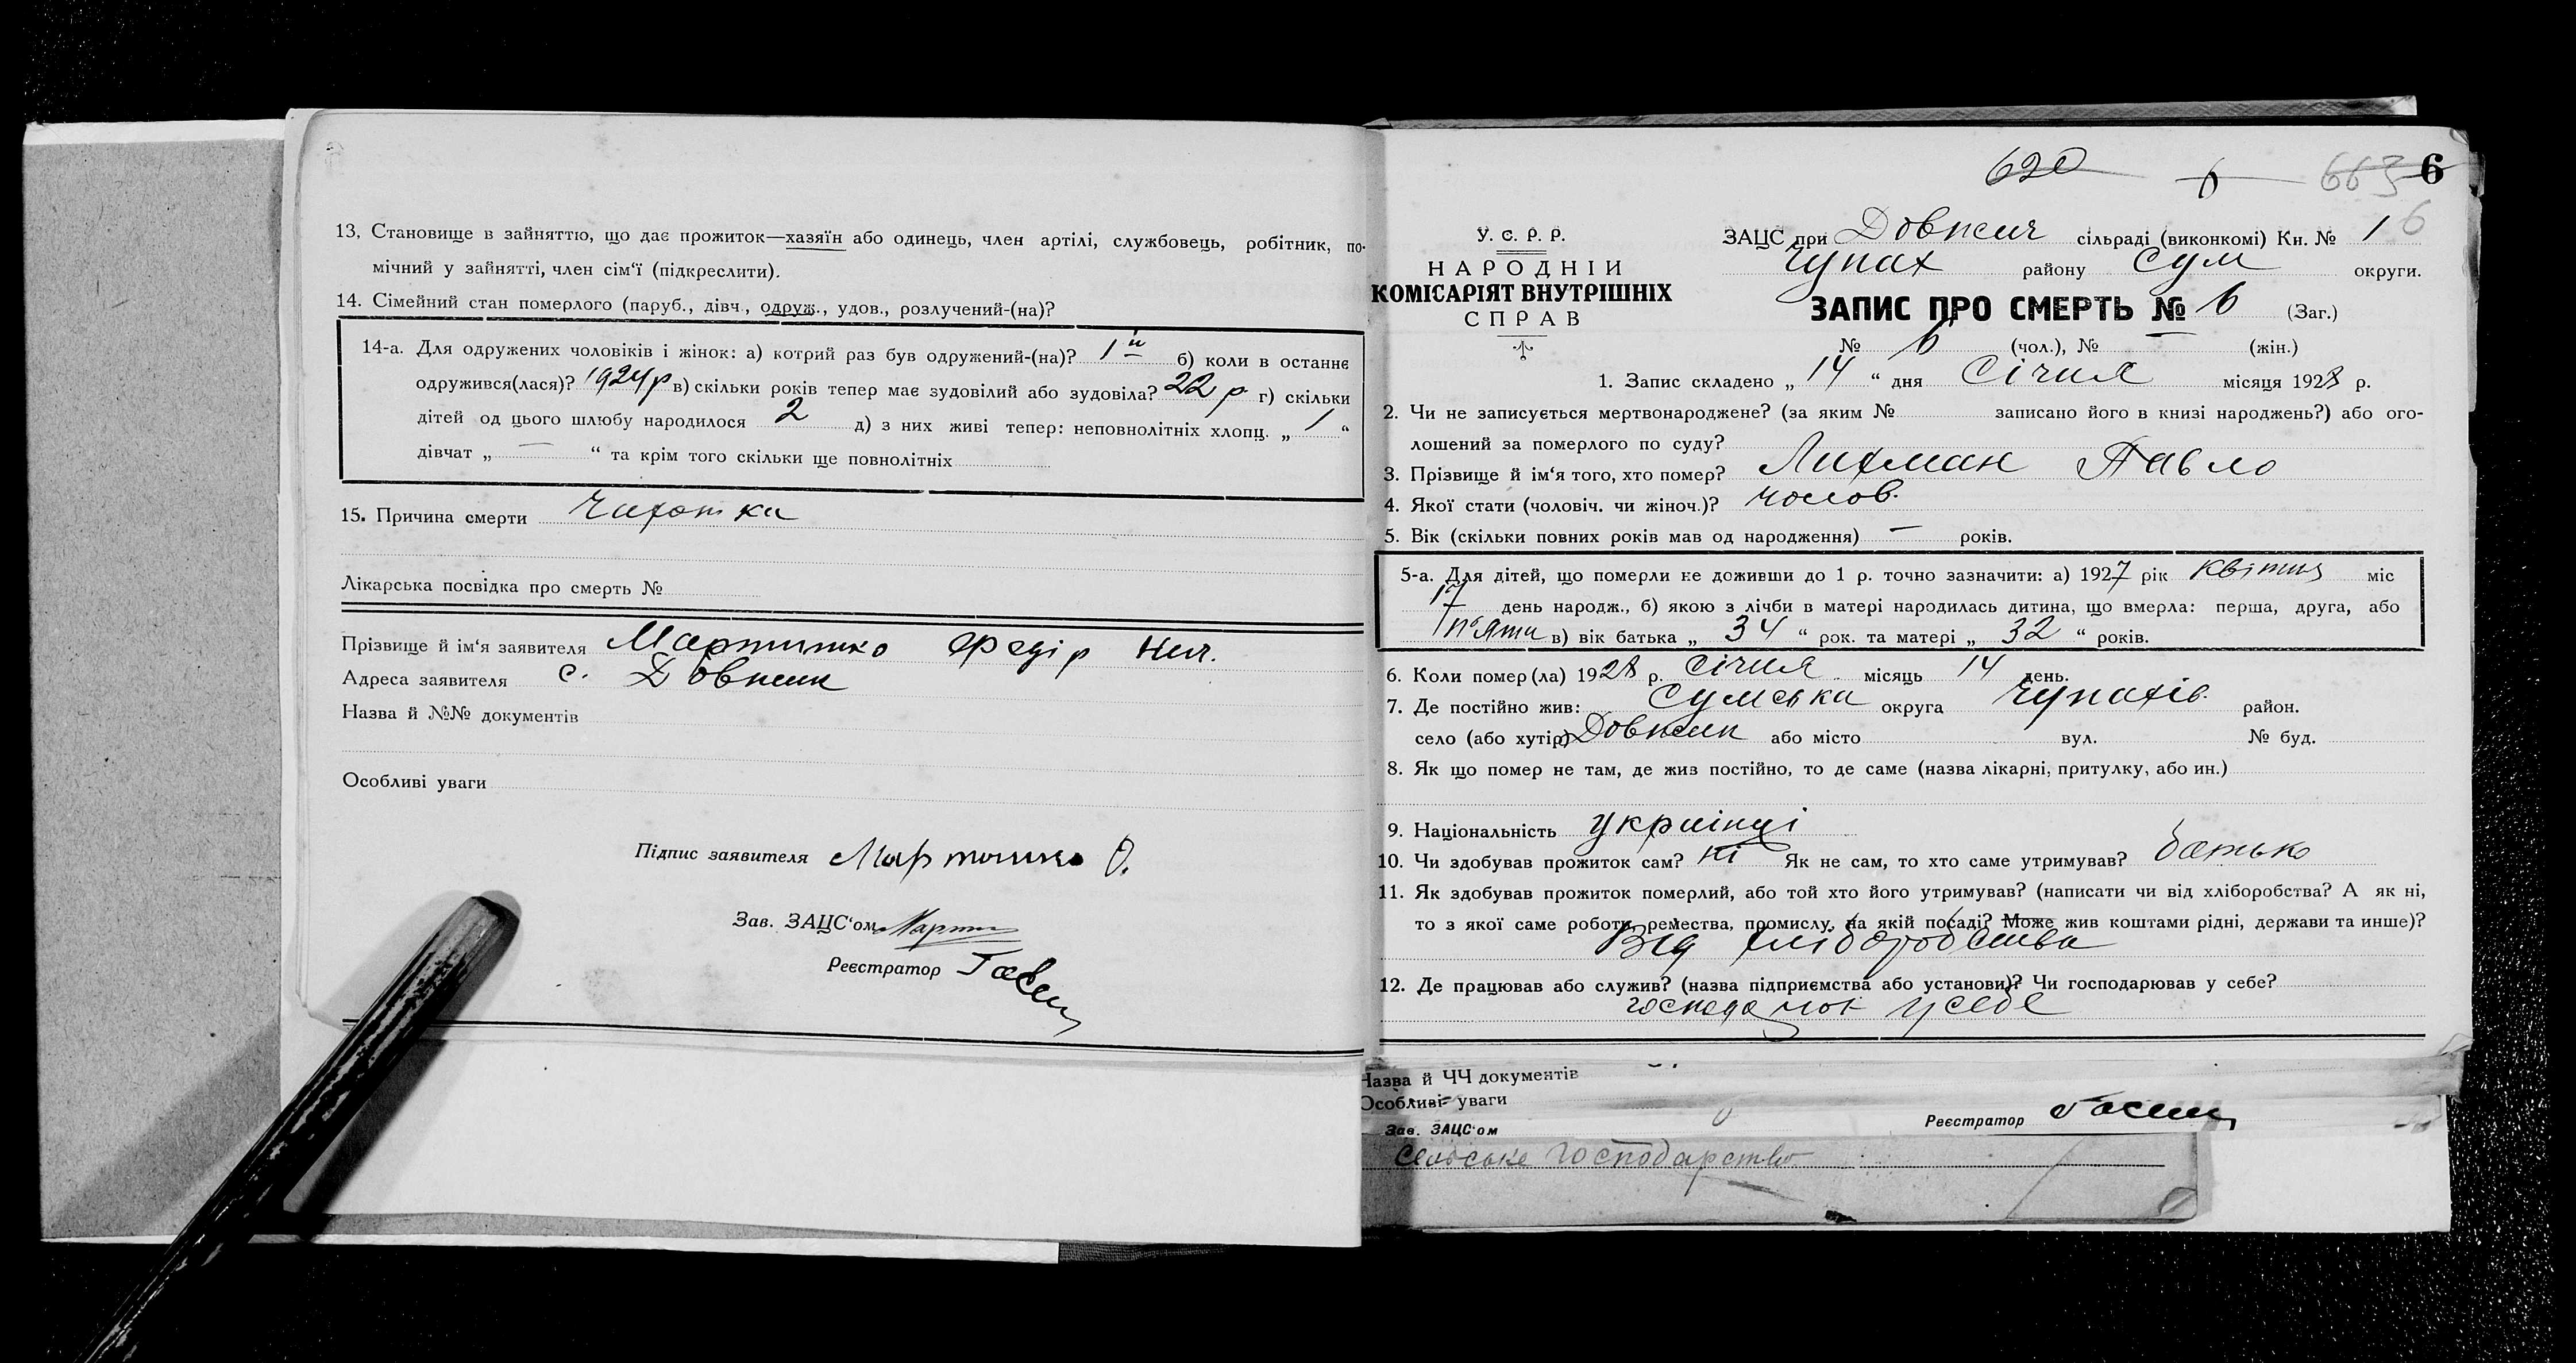 13. Становище в зайняттю, що дає прожиток—хазяїн або одинець, член артілі, службовець, робітник, по-
мічний у зайнятті, член сім‘ї (підкреслити).
14. Сімейний стан померлого (паруб., дівч., одруж., удов., розлучений-(на)?
14-а. Для одружених чоловіків і жінок: а) котрий раз був одружений-(на)? 1й б) коли в останнє
одружився(лася)? 1924 р в) скільки років тепер має зудовілий або зудовіла? 22 р г) скільки
дітей од цього шлюбу народилося 2 д) з них живі тепер: неповнолітніх хлопц. „ 1 “
дівчат „ — “ та крім того скільки ще повнолітніх
15. Причина смерти Чахотка
Лікарська посвідка про смерть №
Прізвище й ім‘я заявителя Мартинко Федір
Адреса заявителя с. Довжик
Назва й №№ документів
Особливі уваги
Підпис заявителя Мартинко Ф.
Зав. ЗАЦС‘ом
Реєстратор
620 6 663 6
6
У. С. Р. Р.
НАРОДНІЙ
КОМІСАРІЯТ ВНУТРІШНІХ
СПРАВ
ЗАЦС при Довжич сільраді (виконкомі) Кн. № 1
Чупах району Сум округи.
ЗАПИС ПРО СМЕРТЬ № 6 (Заг.)
№ 6 (чол.), № — (жін.)
1. Запис складено „ 14 “ дня Січня місяця 1928 р.
2. Чи не записується мертвонароджене? (за яким № записано його в книзі народжень?) або ого-
лошений за померлого по суду?
3. Прізвище й ім‘я того, хто помер? Лихман Павло
4. Якої стати (чоловіч. чи жіноч.)? чолов.
5. Вік (скільки повних років мав од народження) — років.
5-а. Для дітей, що померли не доживши до 1 р. точно зазначити: а) 1927 рік квітня міс
17 день народж., б) якою з лічби в матері народилась дитина, що вмерла: перша, друга, або
п‘ята в) вік батька „ 34 “ рок. та матері „ 32 “ років.
6. Коли помер(ла) 1928 р. Січня місяць 14 день.
7. Де постійно жив: Сумська округа Чупахів. район.
село (або хутір) Довжик або місто вул. № буд.
8. Як що помер не там, де жив постійно, то де саме (назва лікарні, притулку, або ин.)
9. Національність українці
10. Чи здобував прожиток сам? ні Як не сам, то хто саме утримував? батько
11. Як здобував прожиток померлий, або той хто його утримував? (написати чи від хліборобства? А як ні,
то з якої саме роботи, ремества, промислу, на якій посаді? Може жив коштами рідні, держави та инше)?
Від хліборобства
12. Де працював або служив? (назва підприємства або установи)? Чи господарював у себе?
у себе
Назва й ЧЧ документів
Особливі уваги
Зав. ЗАЦС‘ом Реєстратор
Сельське господарство